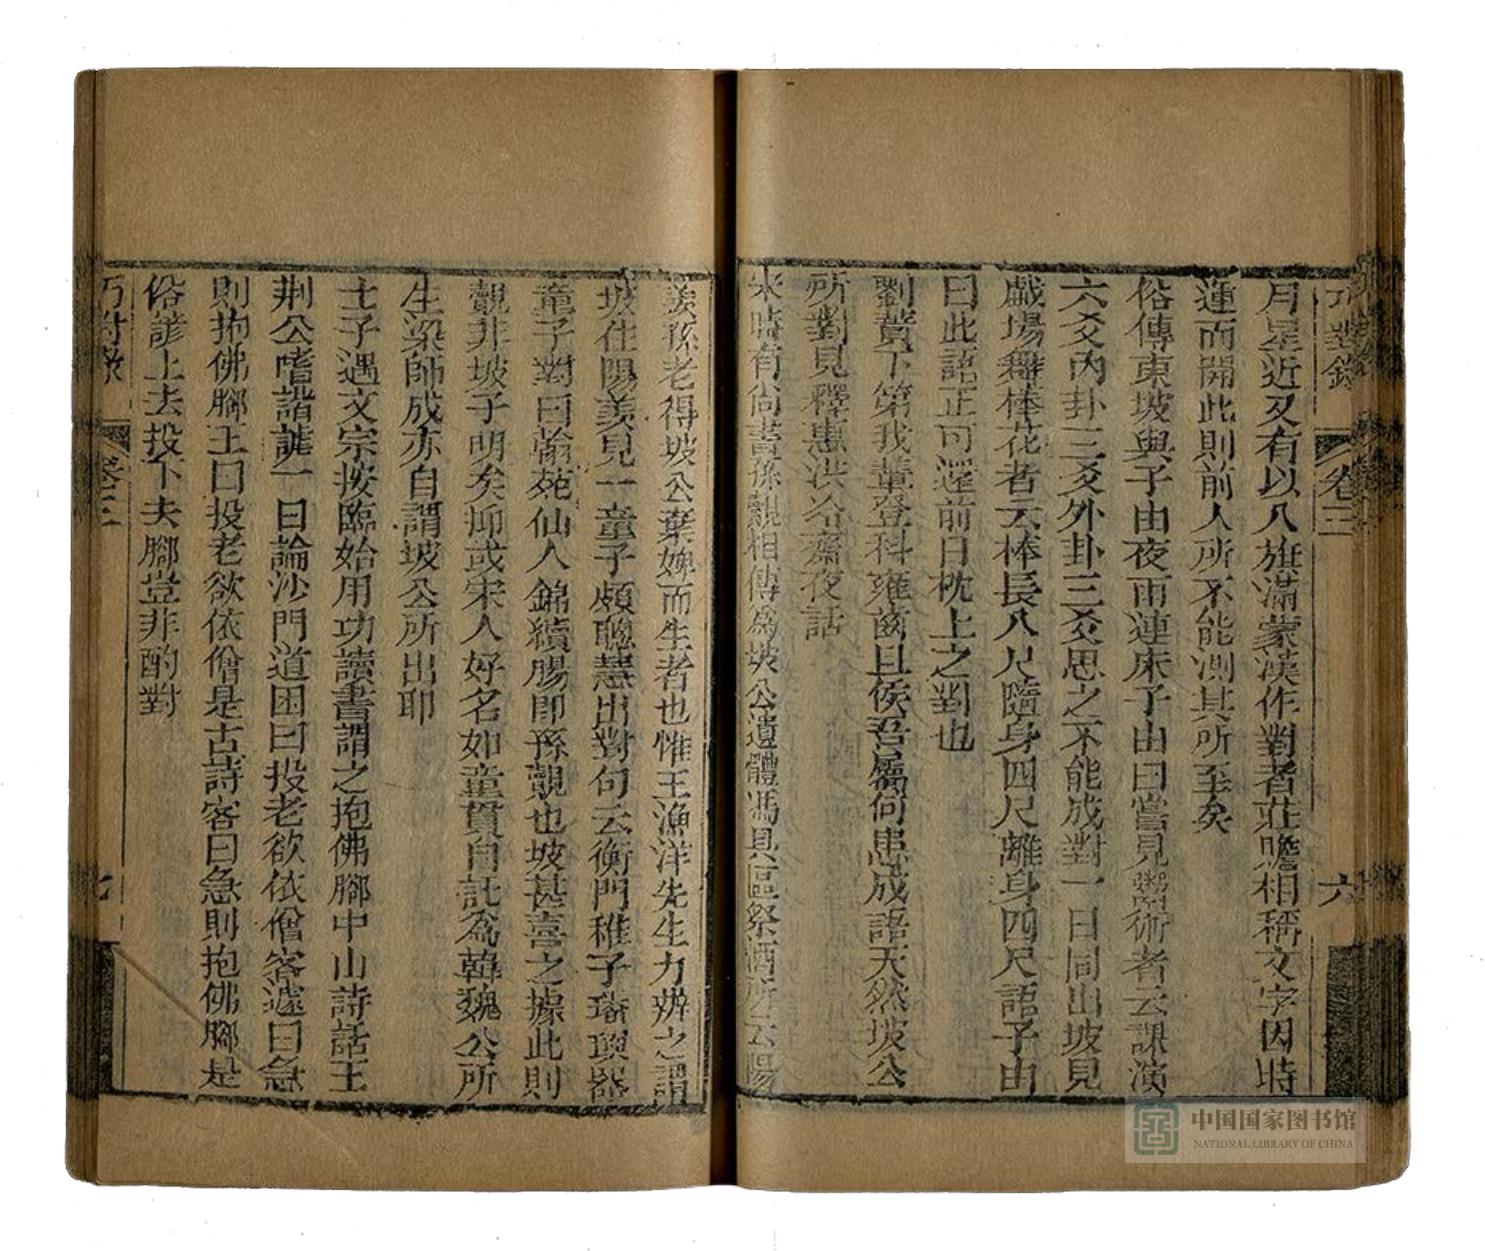 巧對錄 卷三 六
月星近又有以八旗滿蒙漢作對者莊雅相稱文字因時
運而開此則前人所不能測其所至矣
俗傳東坡與子由夜雨連床子由曰嘗見鬻術者云課演
六爻內卦三爻外卦三爻思之不能成對一日同出坡見
戲場舞棒花者云棒長八尺隨身四尺離身四尺語子由
曰此語正可還前日枕上之對也
劉蕡下第我輩登科雍齒且侯吾屬何患成語天然坡公
所對見釋惠洪冷齋夜話
宋晴有尚書孫覿相傳為坡公遺體馮具區祭酒所云陽
羨孫老得坡公棄婢而生者也惟王漁洋先生力辨之謂
坡在陽羨見一童子頗聰慧出對句云衡門稚子璠璵器
童子對曰翰苑仙人錦繡腸即孫覿也坡甚喜之據此則
覿非坡子明矣抑或宋人好名如童貫自託為韓魏公所
生梁師成亦自謂坡公所出耶
士子遇文宗按臨始用功讀書謂之抱佛腳中山詩話王
荆公嗜諧謔一日論沙門道因曰投老欲依僧客遽曰急
則抱佛腳王曰投老欲依僧是古詩客曰急則抱佛腳是
俗諺上去投下去腳豈非的對
巧對錄 卷三 七
中国国家图书馆
NATIONAL LIBRARY OF CHINA